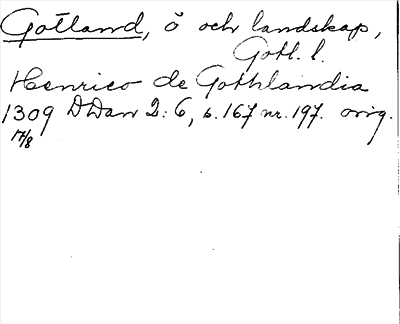 Gotland, ö och landskap,
Gotl. l.
Henrico de Gothlandia
1309 DDan 2:6, s. 167 nr. 197. orig.
17/8